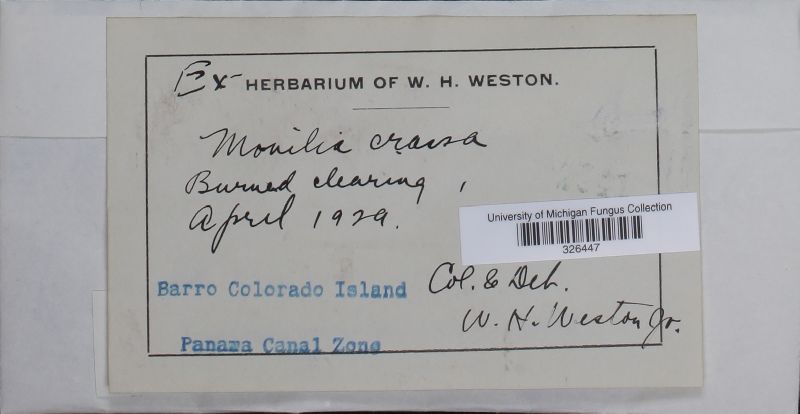 Ex- HERBARIUM OF W. H. WESTON.
Monilia crassa
Burned clearing,
April 1929.
University of Michigan Fungus Collection
326447
Barro Colorado Island
Col. & Det.
W. H. Weston Jr.
Panama Canal Zone